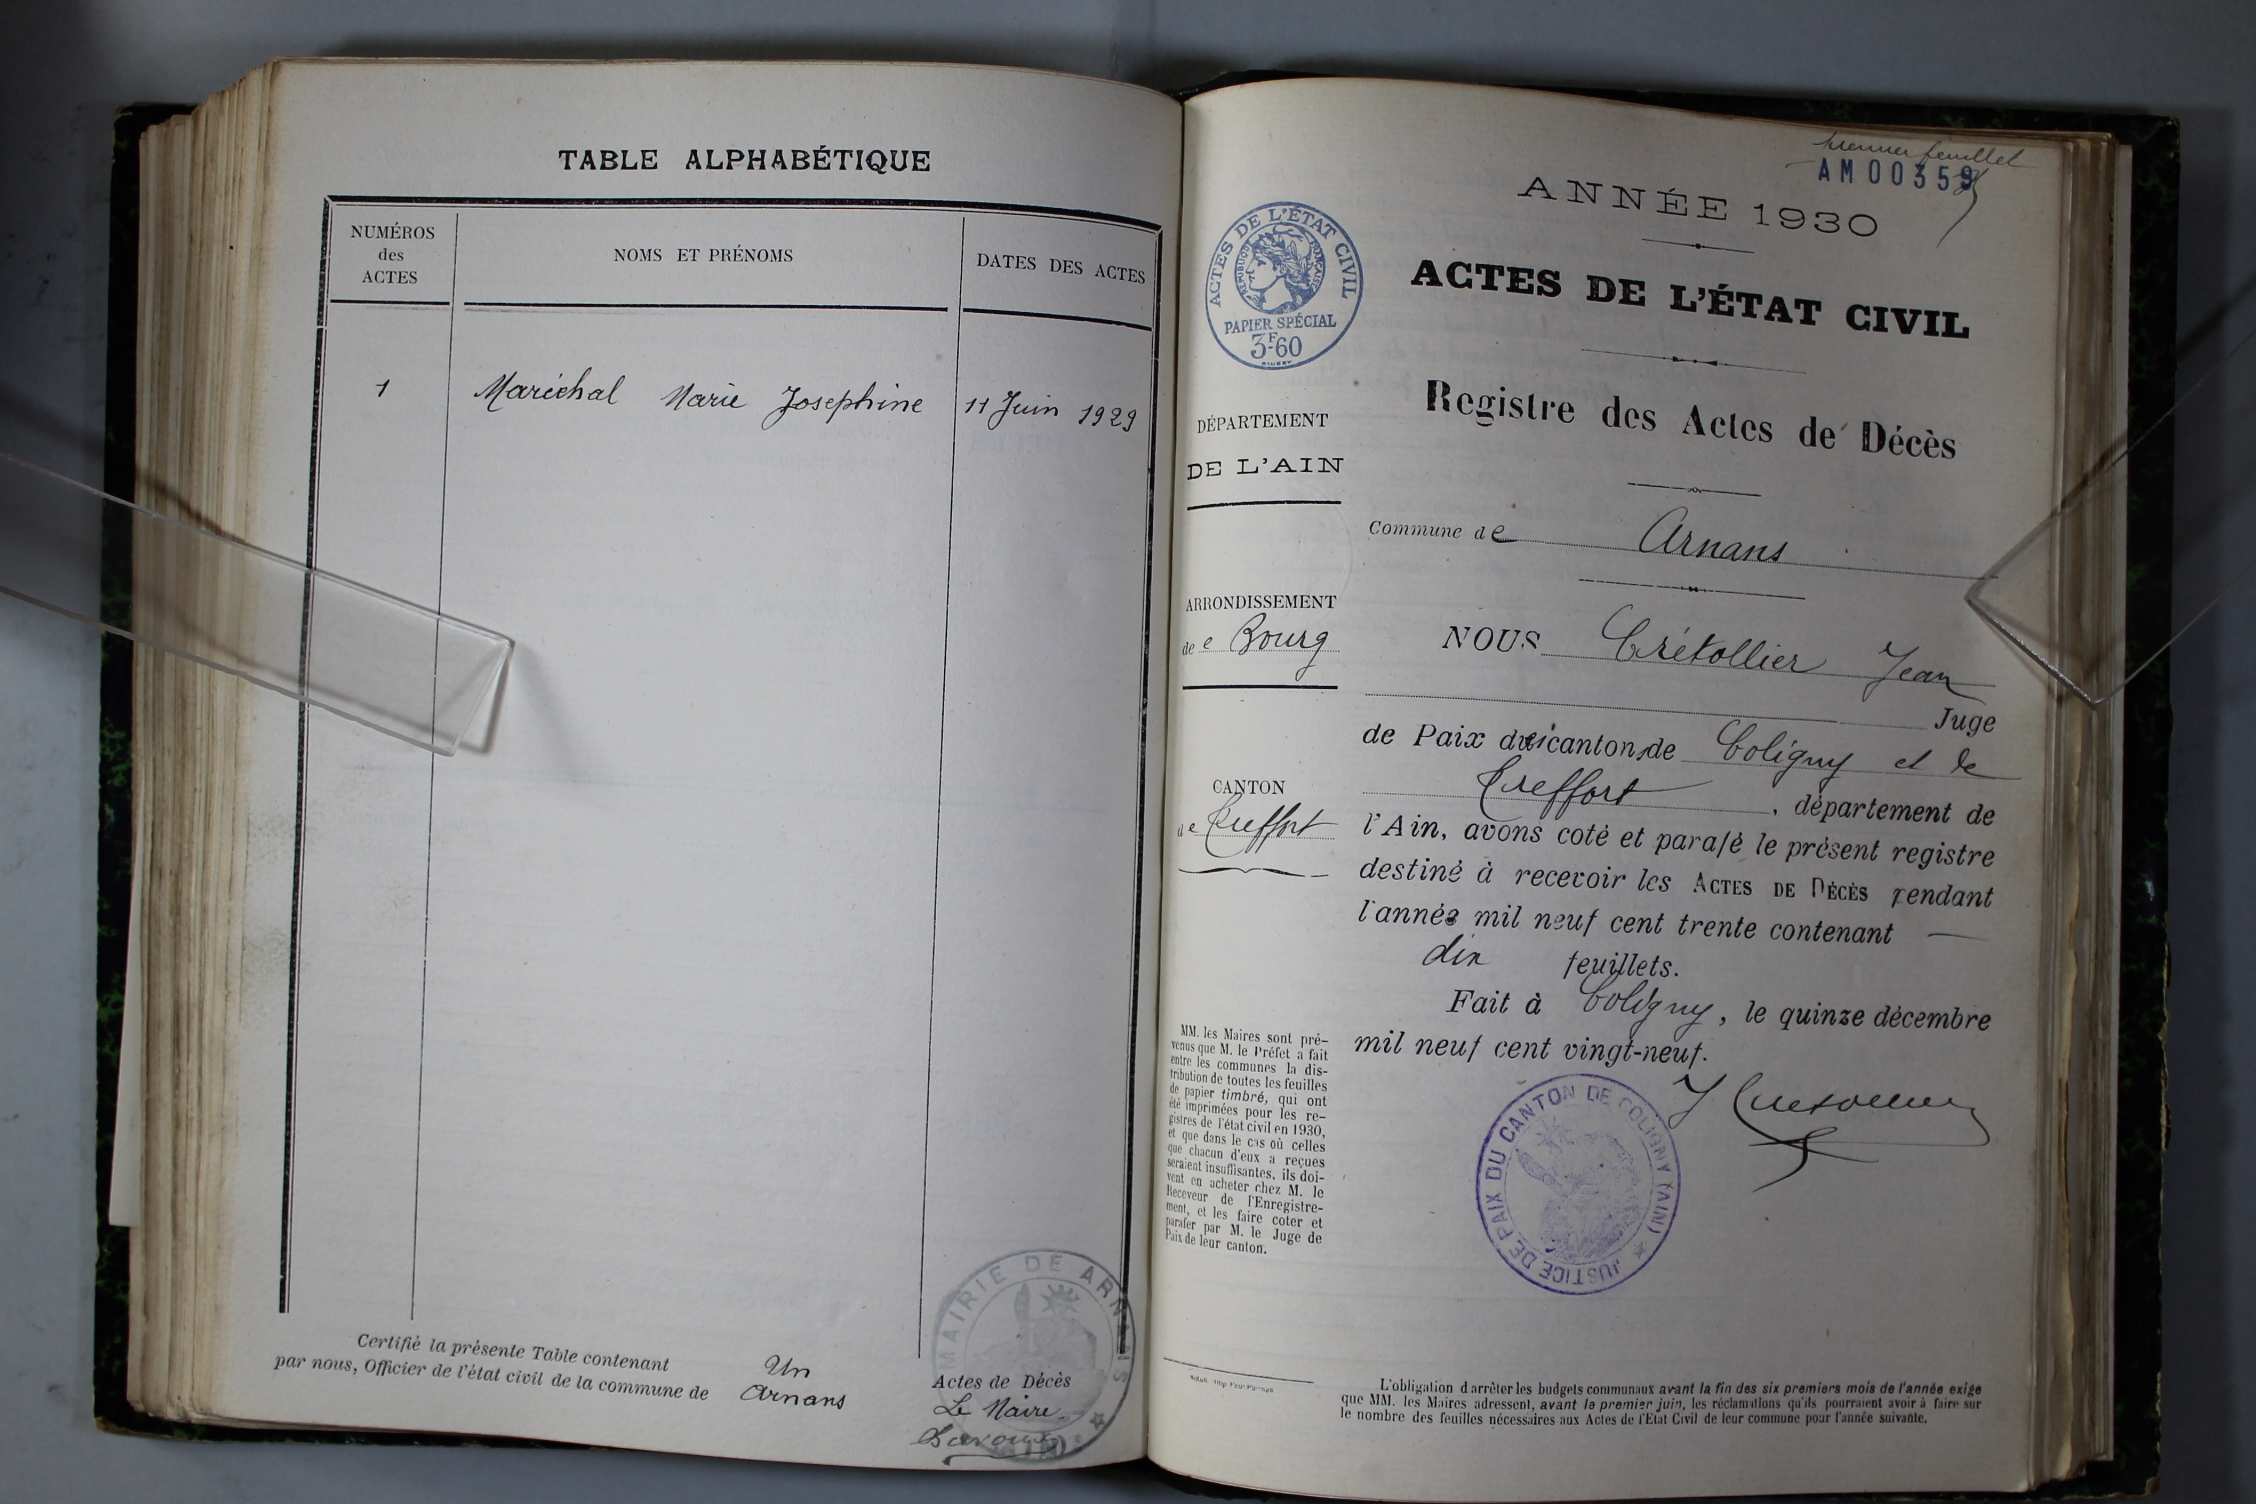 TABLE ALPHABÉTIQUE
NUMÉROS
des
ACTES
NOMS ET PRÉNOMS
DATES DES ACTES
1 Maréchal Marie Josephine 11 Juin 1929
Certifié la présente Table contenant Un
par nous, Officier de l'état civil de la commune de Arnans
Actes de Décès
Le Maire
MAIRIE DE ARNANS
premier feuillet
AM00359
ANNÉE 1930
ACTES DE L'ÉTAT CIVIL
RÉPUBLIQUE FRANÇAISE
PAPIER SPÉCIAL
3F-60
ACTES DE L'ÉTAT CIVIL
Registre des Actes de Décès
DÉPARTEMENT
DE L'AIN
ARRONDISSEMENT
de e Bourg
CANTON
de Treffort
Commune de Arnans
NOUS Crétollier Jean
Juge
de Paix des cantons de Coligny et de
Treffort, département de
l'Ain, avons coté et parafé le présent registre
destiné à recevoir les ACTES DE DÉCÈS pendant
l'année mil neuf cent trente contenant
dix feuillets.
Fait à Coligny, le quinze décembre
mil neuf cent vingt-neuf.
J Cretollier
JUSTICE DE PAIX DU CANTON DE COLIGNY (AIN)
MM. les Maires sont pré-
venus que M. le Préfet a fait
entre les communes la dis-
tribution de toutes les feuilles
de papier timbré, qui ont
été imprimées pour les re-
gistres de l'état civil en 1930,
et que dans le cas où celles
que chacun d'eux a reçues
seraient insuffisantes, ils doi-
vent en acheter chez M. le
Receveur de l'Enregistre-
ment, et les faire coter et
parafer par M. le Juge de
Paix de leur canton.
L'obligation d'arrêter les budgets communaux avant la fin des six premiers mois de l'année exige
que MM. les Maires adressent, avant le premier juin, les réclamations qu'ils pourraient avoir à faire sur
le nombre des feuilles nécessaires aux Actes de l'Etat Civil de leur commune pour l'année suivante.